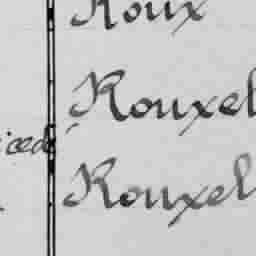 Roux
Rouxel
Rouxel